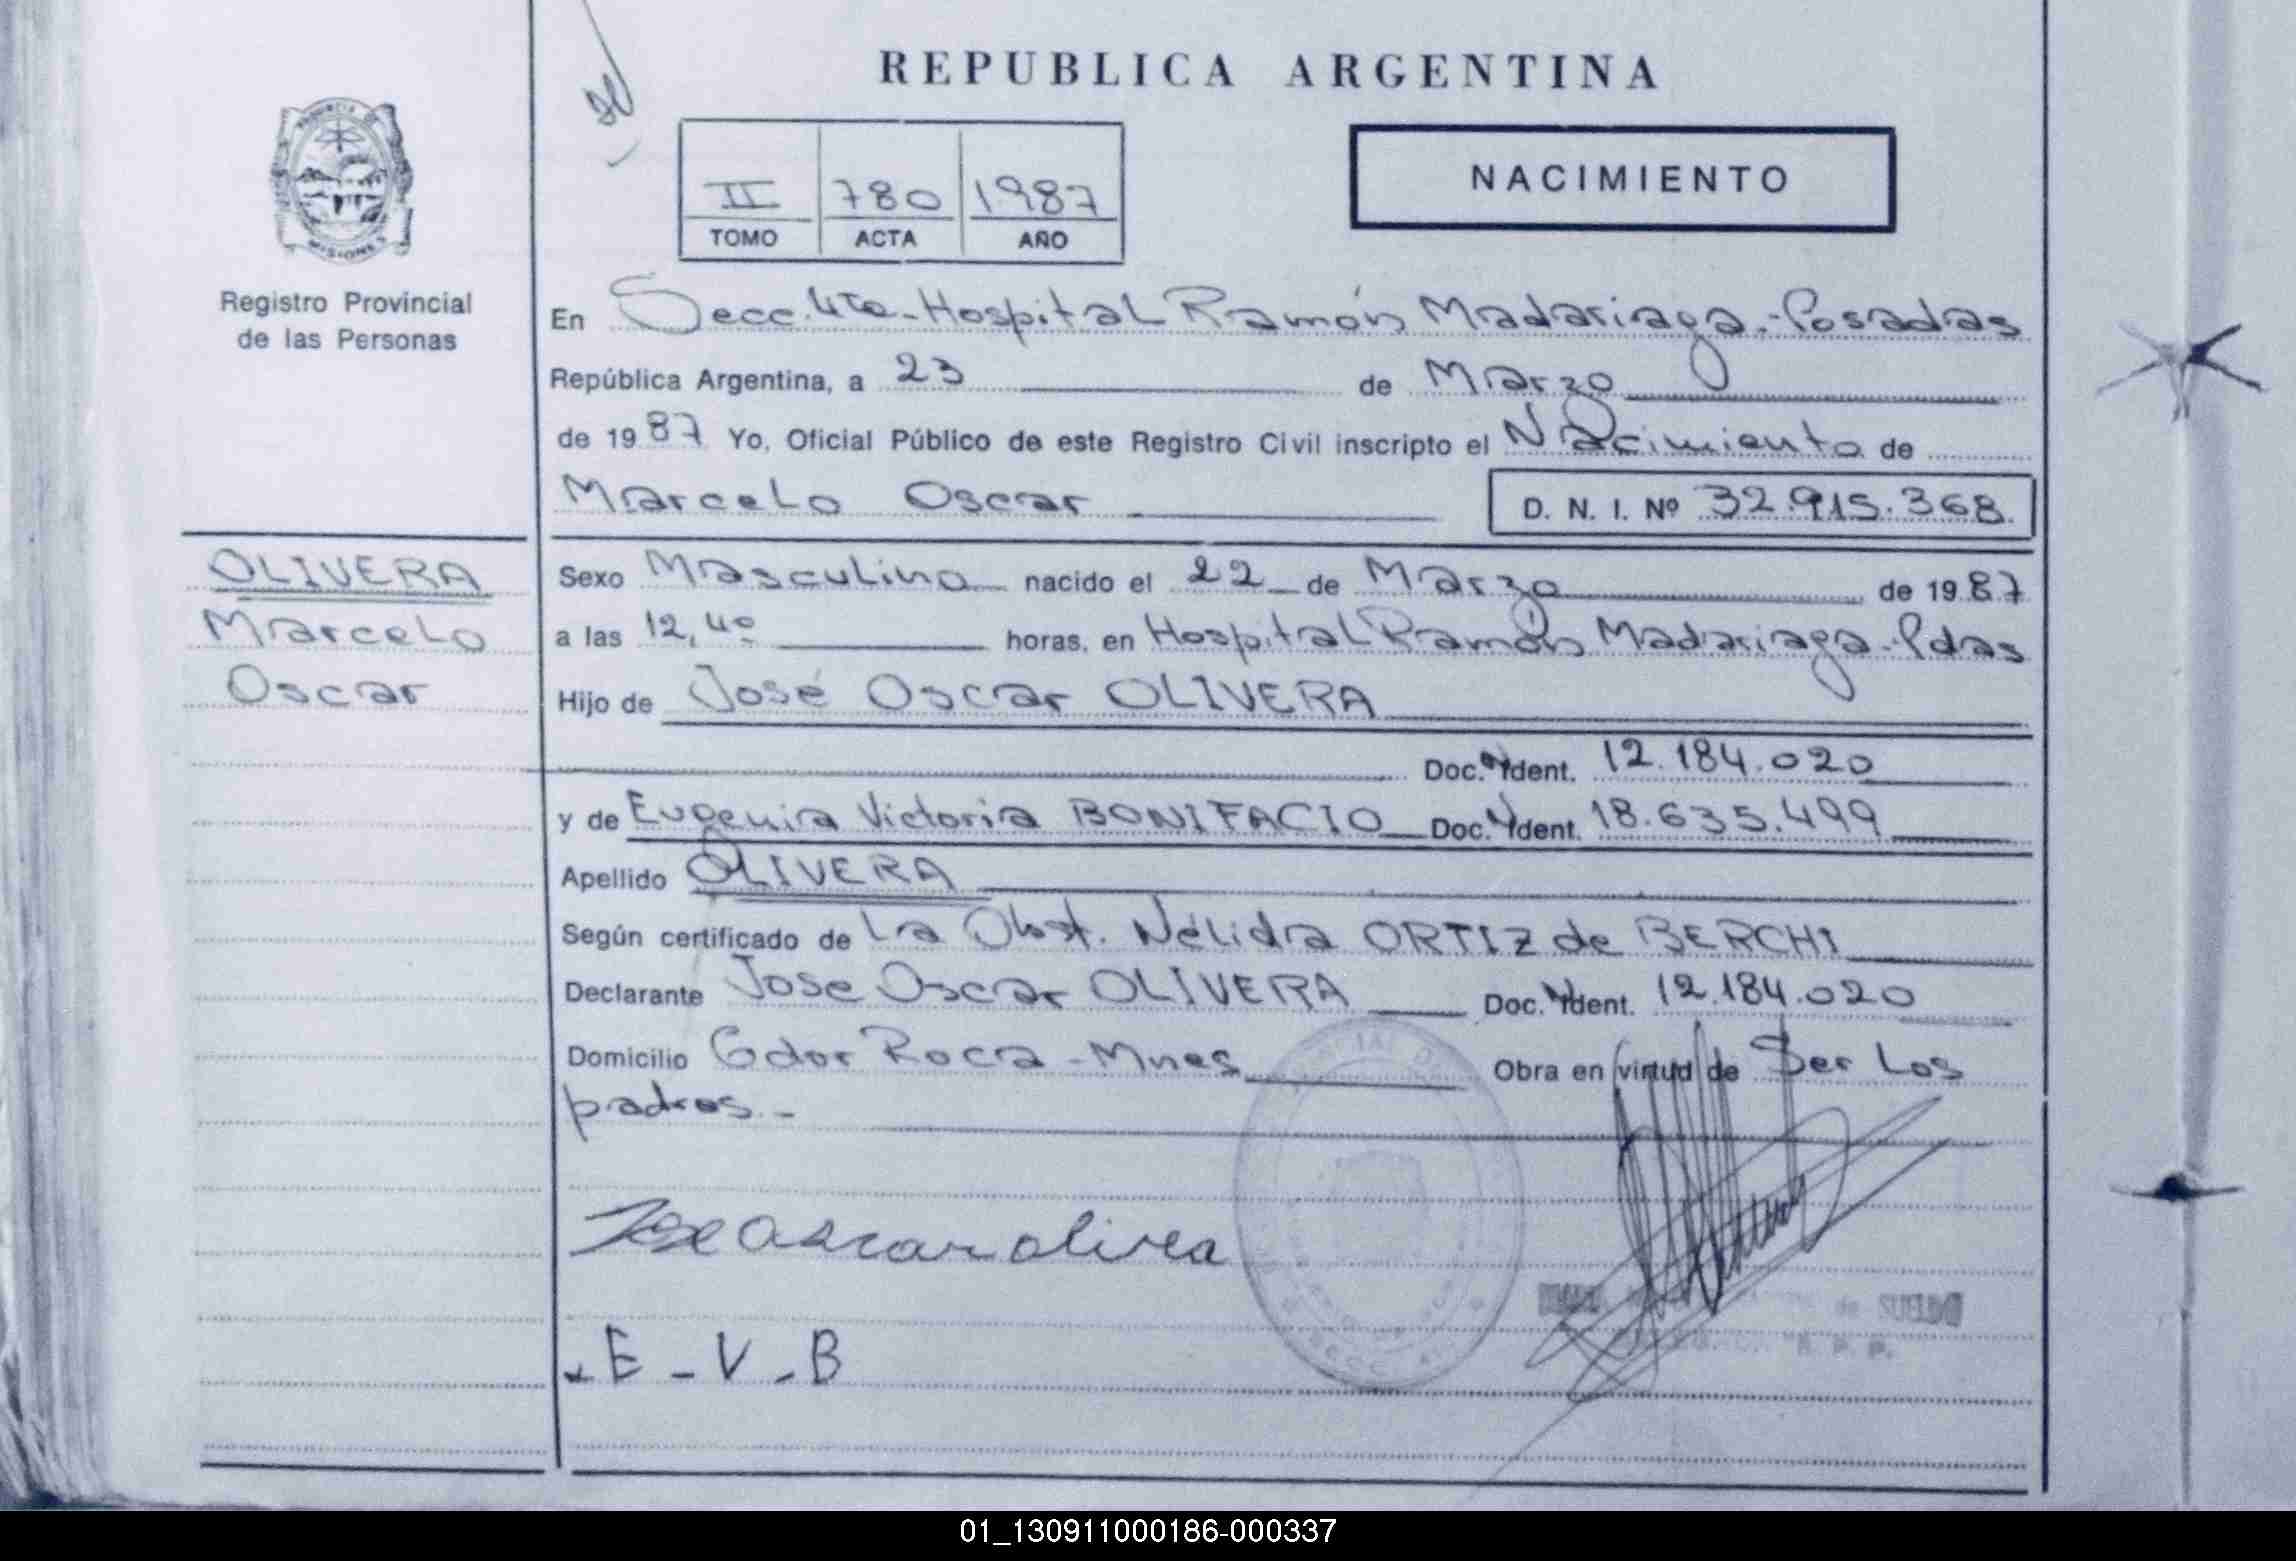 REPUBLICA ARGENTINA
PROVINCIA DE MISIONES
Registro Provincial
de las Personas
II 780 1987
TOMO ACTA AÑO
NACIMIENTO
En Secc. 4ta - Hospital Ramón Madariaga.- Posadas
República Argentina, a 23 de Marzo
de 1987 Yo, Oficial Público de este Registro Civil inscripto el Nacimiento de
Marcelo Oscar D. N. I. Nº 32.915.368
OLIVERA
Marcelo
Oscar
Sexo Masculino nacido el 22 de Marzo de 1987
a las 12,40 horas, en Hospital Ramón Madariaga - Pdas
Hijo de José Oscar OLIVERA
Doc. Ident. 12.184.020
y de Eugenia Victoria BONIFACIO Doc. Ident. 18.635.499
Apellido OLIVERA
Según certificado de La Obst. Nélida ORTIZ de BERCHI
Declarante Jose Oscar OLIVERA Doc. Ident. 12.184.020
Domicilio Gdor Roca - Mnes Obra en virtud de Ser Los
padres.-
Jose oscar olivera
- E - V - B
de SUELDO
R. P. P.
01_130911000186-000337